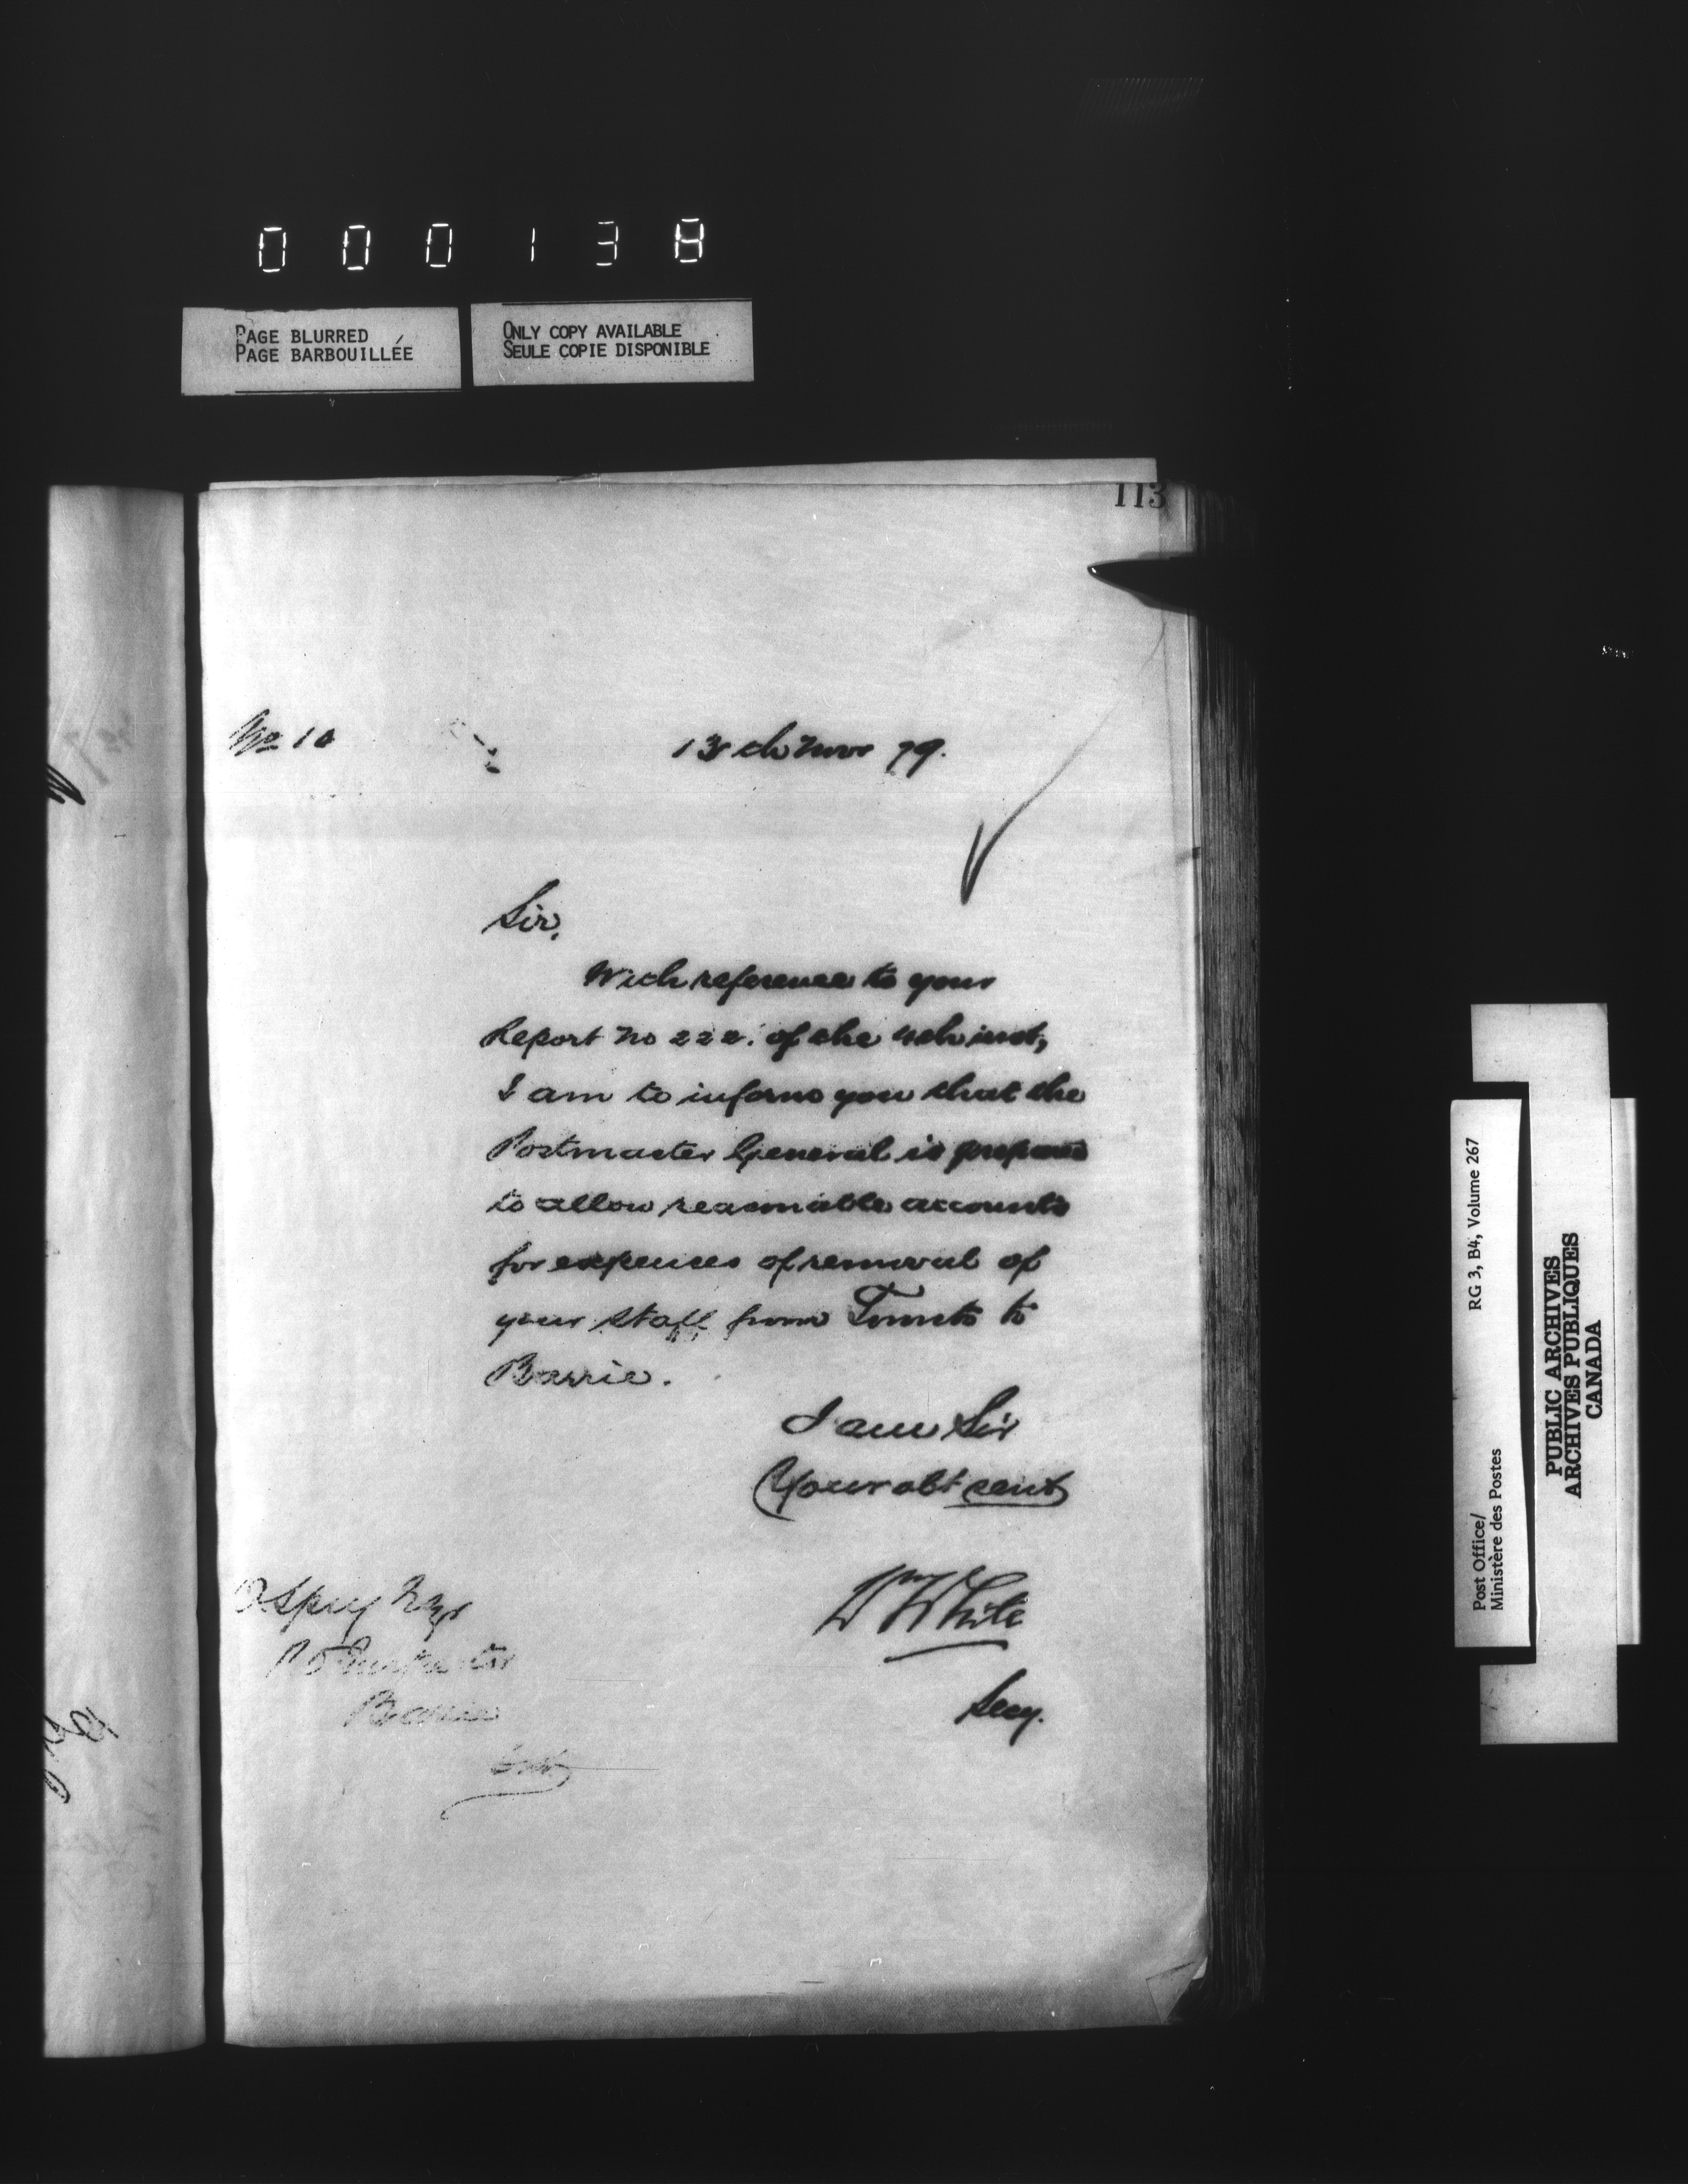 000138
PAGE BLURRED
PAGE BARBOUILLÉE
ONLY COPY AVAILABLE
SEULE COPIE DISPONIBLE
113
No 10
13th Novr 79.
Sir,
With reference to your
Report No 222. of the 4th inst,
I am to inform you that the
Postmaster General is prepared
to allow reasonable accounts
for expenses of removal of
your staff from Toronto to
Barrie.
I am Sir
Your obt servt
Wm White
Secy.
Spry Esqr
P O Inspector
Barrie
Ont.
Post Office/
Ministère des Postes
RG 3, B4, Volume 267
PUBLIC ARCHIVES
ARCHIVES PUBLIQUES
CANADA